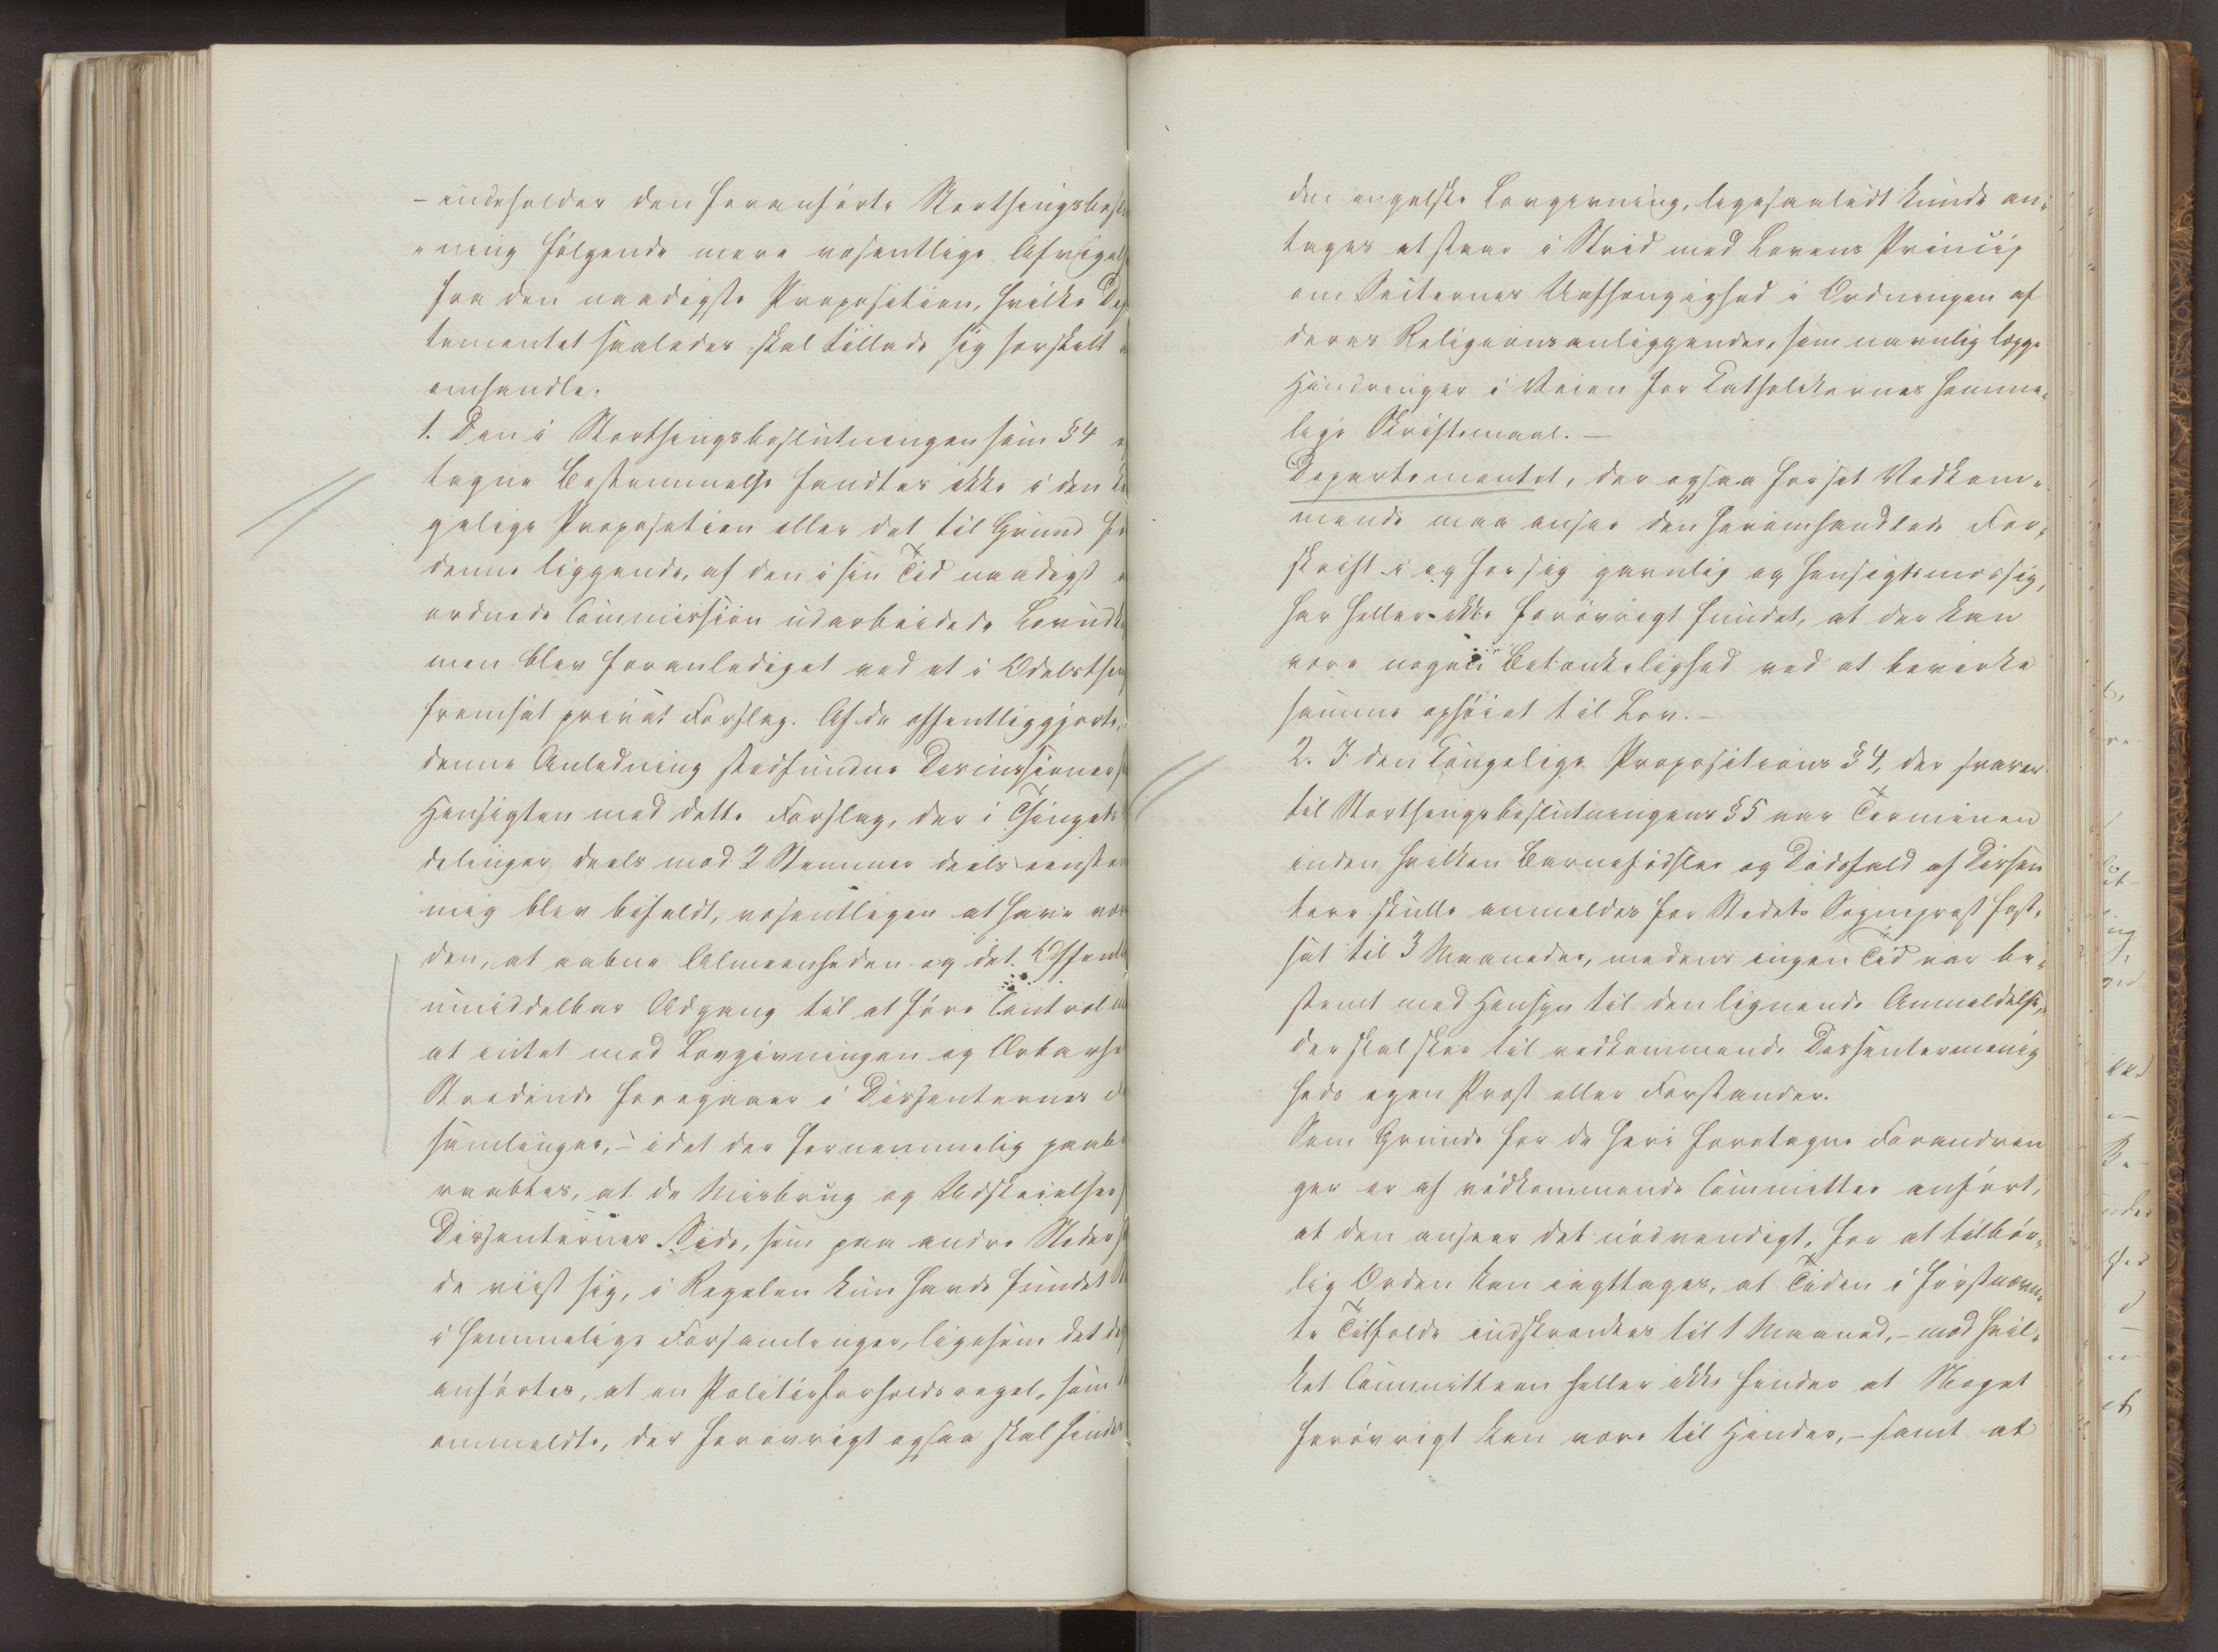 - indeholder den foranførte Storthingsbeslut
"ning følgende mere væsentlige Afvigels
fra den naadigste Proposition, hvilke Dep
tementet saaledes skal tillade sig særskilt
omhandle.
1. Den i Storthingsbeslutningen som § 4
tagne Bestemmelse fandtes ikke i den
gelige Proposition eller det til Grund for
denne liggende, af den i sin Tid naadigst
ordnede Commission udarbeidede Lovudk
men blev foranlediget ved et i Odelsthing
fremsat privat Forslag. Af de offentliggjorte,
denne Anledning stedfundne Discussioner
Hensigten med dette Forslag, der i Thingets
delinger deels mod 2 Stemmer deels eenstem
mig blev bifaldt, væsentligen at have vær
den, at aabne Almeenheden og det Offentl
umiddelbar Adgang til at føre Control
at intet mod Lovgivningen og Ærbarhed
Stridende foregaaer i Dissenternes
samlinger, - idet der fornemmelig paabe
raabtes, at de Misbrug og Udskeielser
Dissenternes Side, som paa andre Steder
de viist sig, i Regelen kun havde fundet St
i hemmelige Forsamlinger, ligesom det des
anførtes, at en Politieforholdsregel, som
ommeldte, der forøvrigt ogsaa skal findes
den engelske Lovgivning, ligesaalidt kunde an-
tages at staae i Strid med Lovens Princip
om Secternes Uafhængighed i Ordningen af
deres Religionsanliggender, som navnlig lægge
Hindringer i Veien for Catholikernes hemme-
lige Skriftemaal. -
Departementet, der ogsaa for sit Vedkom-
mende maa ansee den heromhandlede For-
skrift i og for sig gavnlig og hensigtsmæssig,
har heller ikke forøvrigt fundet, at der kan
være nogen Betænkelighed ved at bevirke
samme ophøiet til Lov. -
2. I den Kongelige Propositions § 4, der svarer
til Storthingsbeslutningens § 5 var Terminen
inden hvilken Barnefødsler og Dødsfald af Dissen
tere skulle anmeldes for Stedets Sognepræst fast-
sat til 3 Maaneder, medens ingen Tid var be-
stemt med Hensyn til den lignende Anmeldelse,
der skal skee til vedkommende Dissentermenig
heds egen Præst eller Forstander.
Som Grunde for de heri foretagne Forandrin
ger er af vedkommende Committee anført,
at den anseer det nødvendigt, for at tilbør-
lig Orden kan iagttages, at Tiden i førstnævn-
te Tilfælde indskrænkes til 1 Maaned, - mod hvil-
ket Committeen heller ikke finder at Noget
forøvrigt kan være til Hinder, - samt at